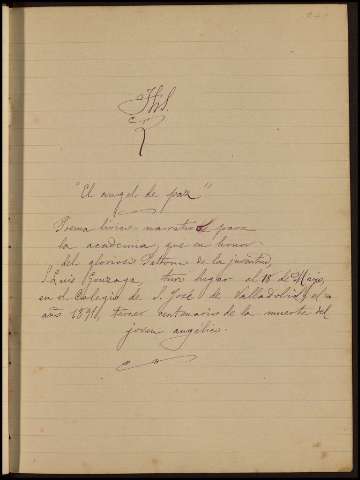 JHS.
"El angel de paz"
Poema lírico-narrativo para
la academia, que en honor
del glorioso Patrono de la juventud,
S. Luis Gonzaga, tuvo lugar el 18 de Mayo,
en el Colegio de S. José de Valladolid, el
año 1891, tercer centenario de la muerte del
joven angélico.